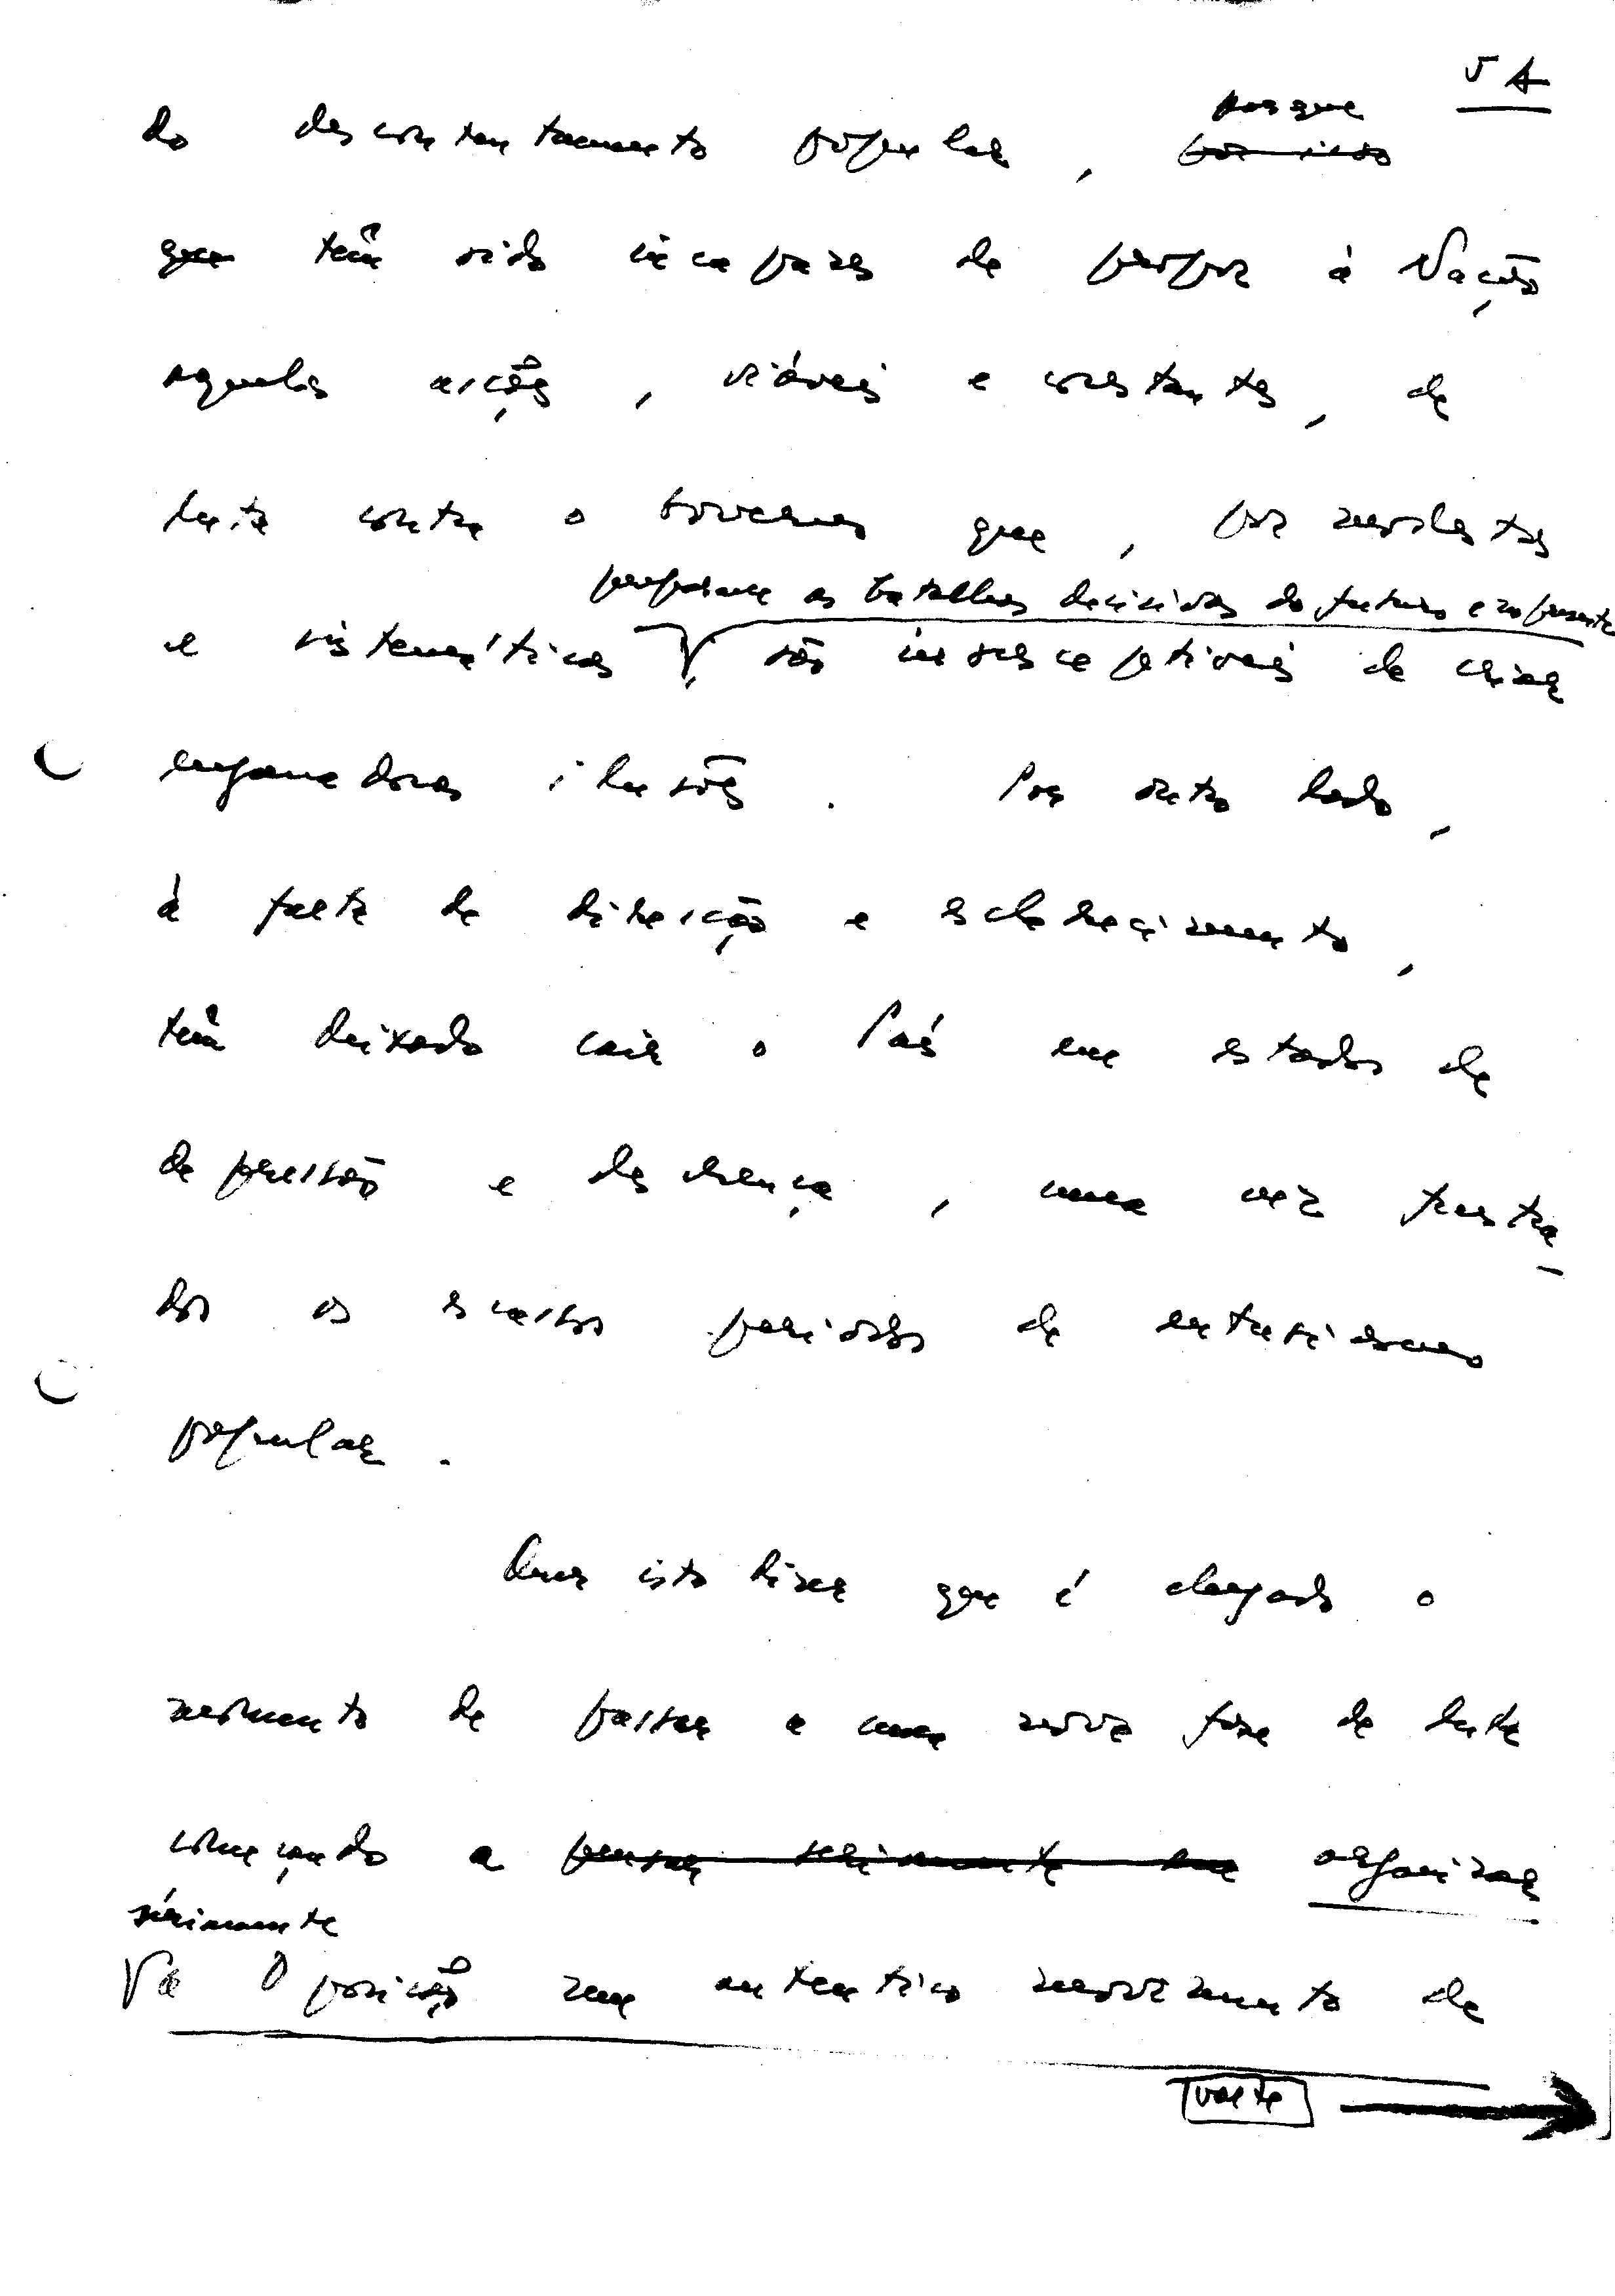 5 A
do descontentamento popular, porque
por isso
que têm sido incapazes de propor à Nação
aquelas acções, viáveis e constantes, de
luta contra o Governo que, por modestas
preparam as batalhas decisivas do futuro e no presente
e sistemáticas, são insusceptíveis de criar
enganadoras ilusões. Por outro lado,
à falta de direcção e esclarecimento,
têm deixado cair o País em estados de
depressão e descrença, uma vez frustra-
dos os escassos períodos de entusiasmo
popular.
Quer isto dizer que é chegado o
momento de passar a uma nova fase de luta
começando a pensar seriamente em organizar
sèriamente
na Oposição um autentico movimento de
volte